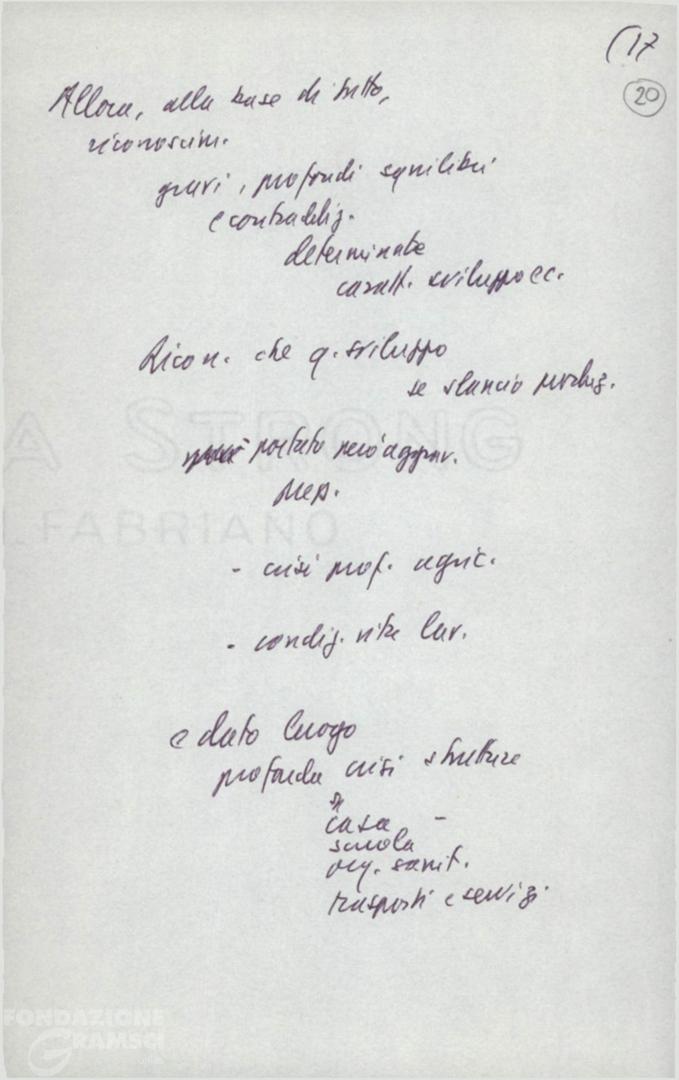 (17
20
Allora, alla base di tutto,
riconoscim.
gravi, profondi squilibri
e contraddiz.
determinate
caratt. sviluppo ec.
Ricon. che q. sviluppo
se slancio produz.
portato però aggrav.
- crisi prof. agric.
- condiz. vita lav.
e dato luogo
profonda crisi strutture
casa -
scuola
org. sanit.
trasporti e servizi
A STRONG
FABRIANO
FONDAZIONE
GRAMSCI